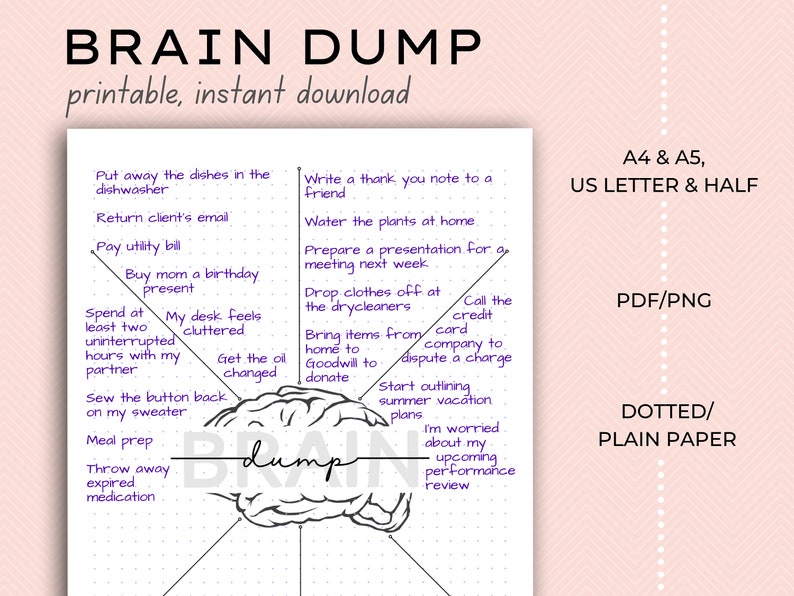 BRAIN DUMP
printable, instant download
Put away the dishes in the
dishwasher
Return client's email
Pay utility bill
Buy mom a birthday
present
Spend at
least two
uninterrupted
hours with my
partner
My desk feels
cluttered
Get the oil
changed
Sew the button back
on my sweater
Meal prep
Throw away
expired
medication
Write a thank you note to a
friend
Water the plants at home
Prepare a presentation for a
meeting next week
Drop clothes off at
the drycleaners
Bring items from
home to
Goodwill to
donate
Call the
credit
card
company to
dispute a charge
Start outlining
summer vacation
plans
I'm worried
about my
upcoming
performance
review
BRAIN
dump
A4 & A5,
US LETTER & HALF
PDF/PNG
DOTTED/
PLAIN PAPER